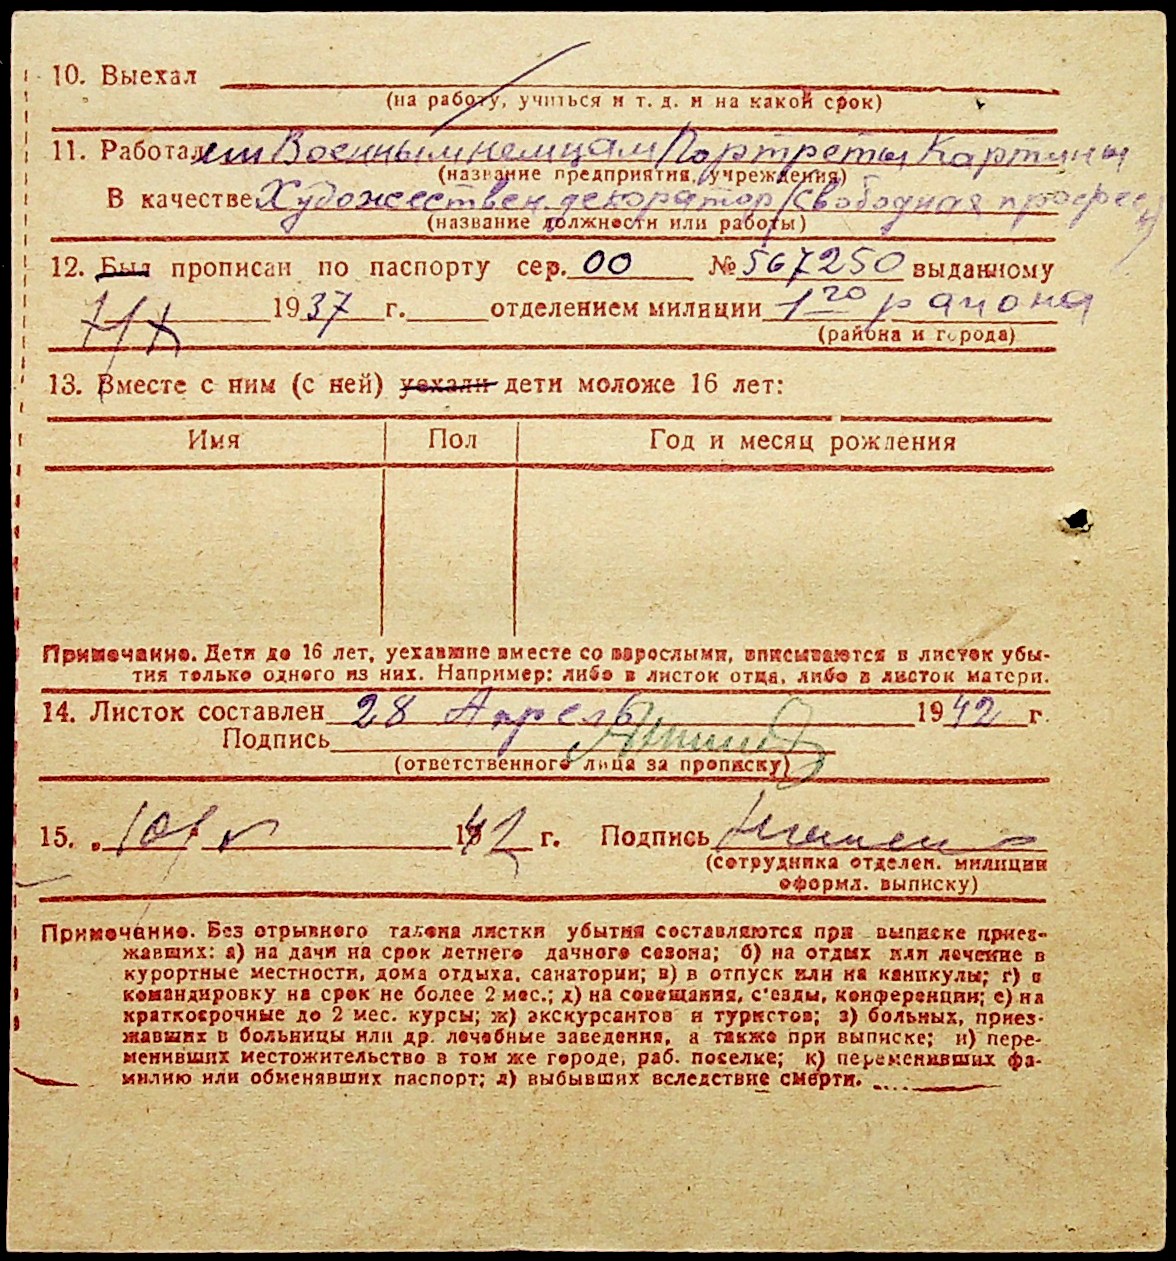 10. Выехал
(на работу, учиться и т. д. и на какой срок)
11. Работал Военным немцам Портреты Картины
(название предприятия, учреждения)
В качестве Художествен. декоратор (Свободная професс.)
(название должности или работы)
12. Был прописан по паспорту сер. 00 № 567250 выданному
1937 г. отделением милиции 1го района
(района и города)
13. Вместе с ним (с ней) уехали дети моложе 16 лет:
Имя Пол Год и месяц рождения
Примечание. Дети до 16 лет, уехавшие вместе со взрослыми, вписываются в листок убы-
тия только одного из них. Например: либо в листок отца, либо в листок матери.
14. Листок составлен 28 Апрель 1942 г.
Подпись
(ответственного лица за прописку)
15. „ 10/V 1942 г. Подпись
(сотрудника отделен. милиции
оформл. выписку)
Примечание. Без отрывного талона листки убытия составляются при выписке приез-
жавших: а) на дачи на срок летнего дачного сезона; б) на отдых или лечение в
курортные местности, дома отдыха, санатории; в) в отпуск или на каникулы; г) в
командировку на срок не более 2 мес.; д) на совещания, с'езды, конференции; е) на
краткосрочные до 2 мес. курсы; ж) экскурсантов и туристов; з) больных, приез-
жавших в больницы или др. лечебные заведения, а также при выписке; и) пере-
менивших местожительство в том же городе, раб. поселке; к) переменивших фа-
милию или обменявших паспорт; л) выбывших вследствие смерти.